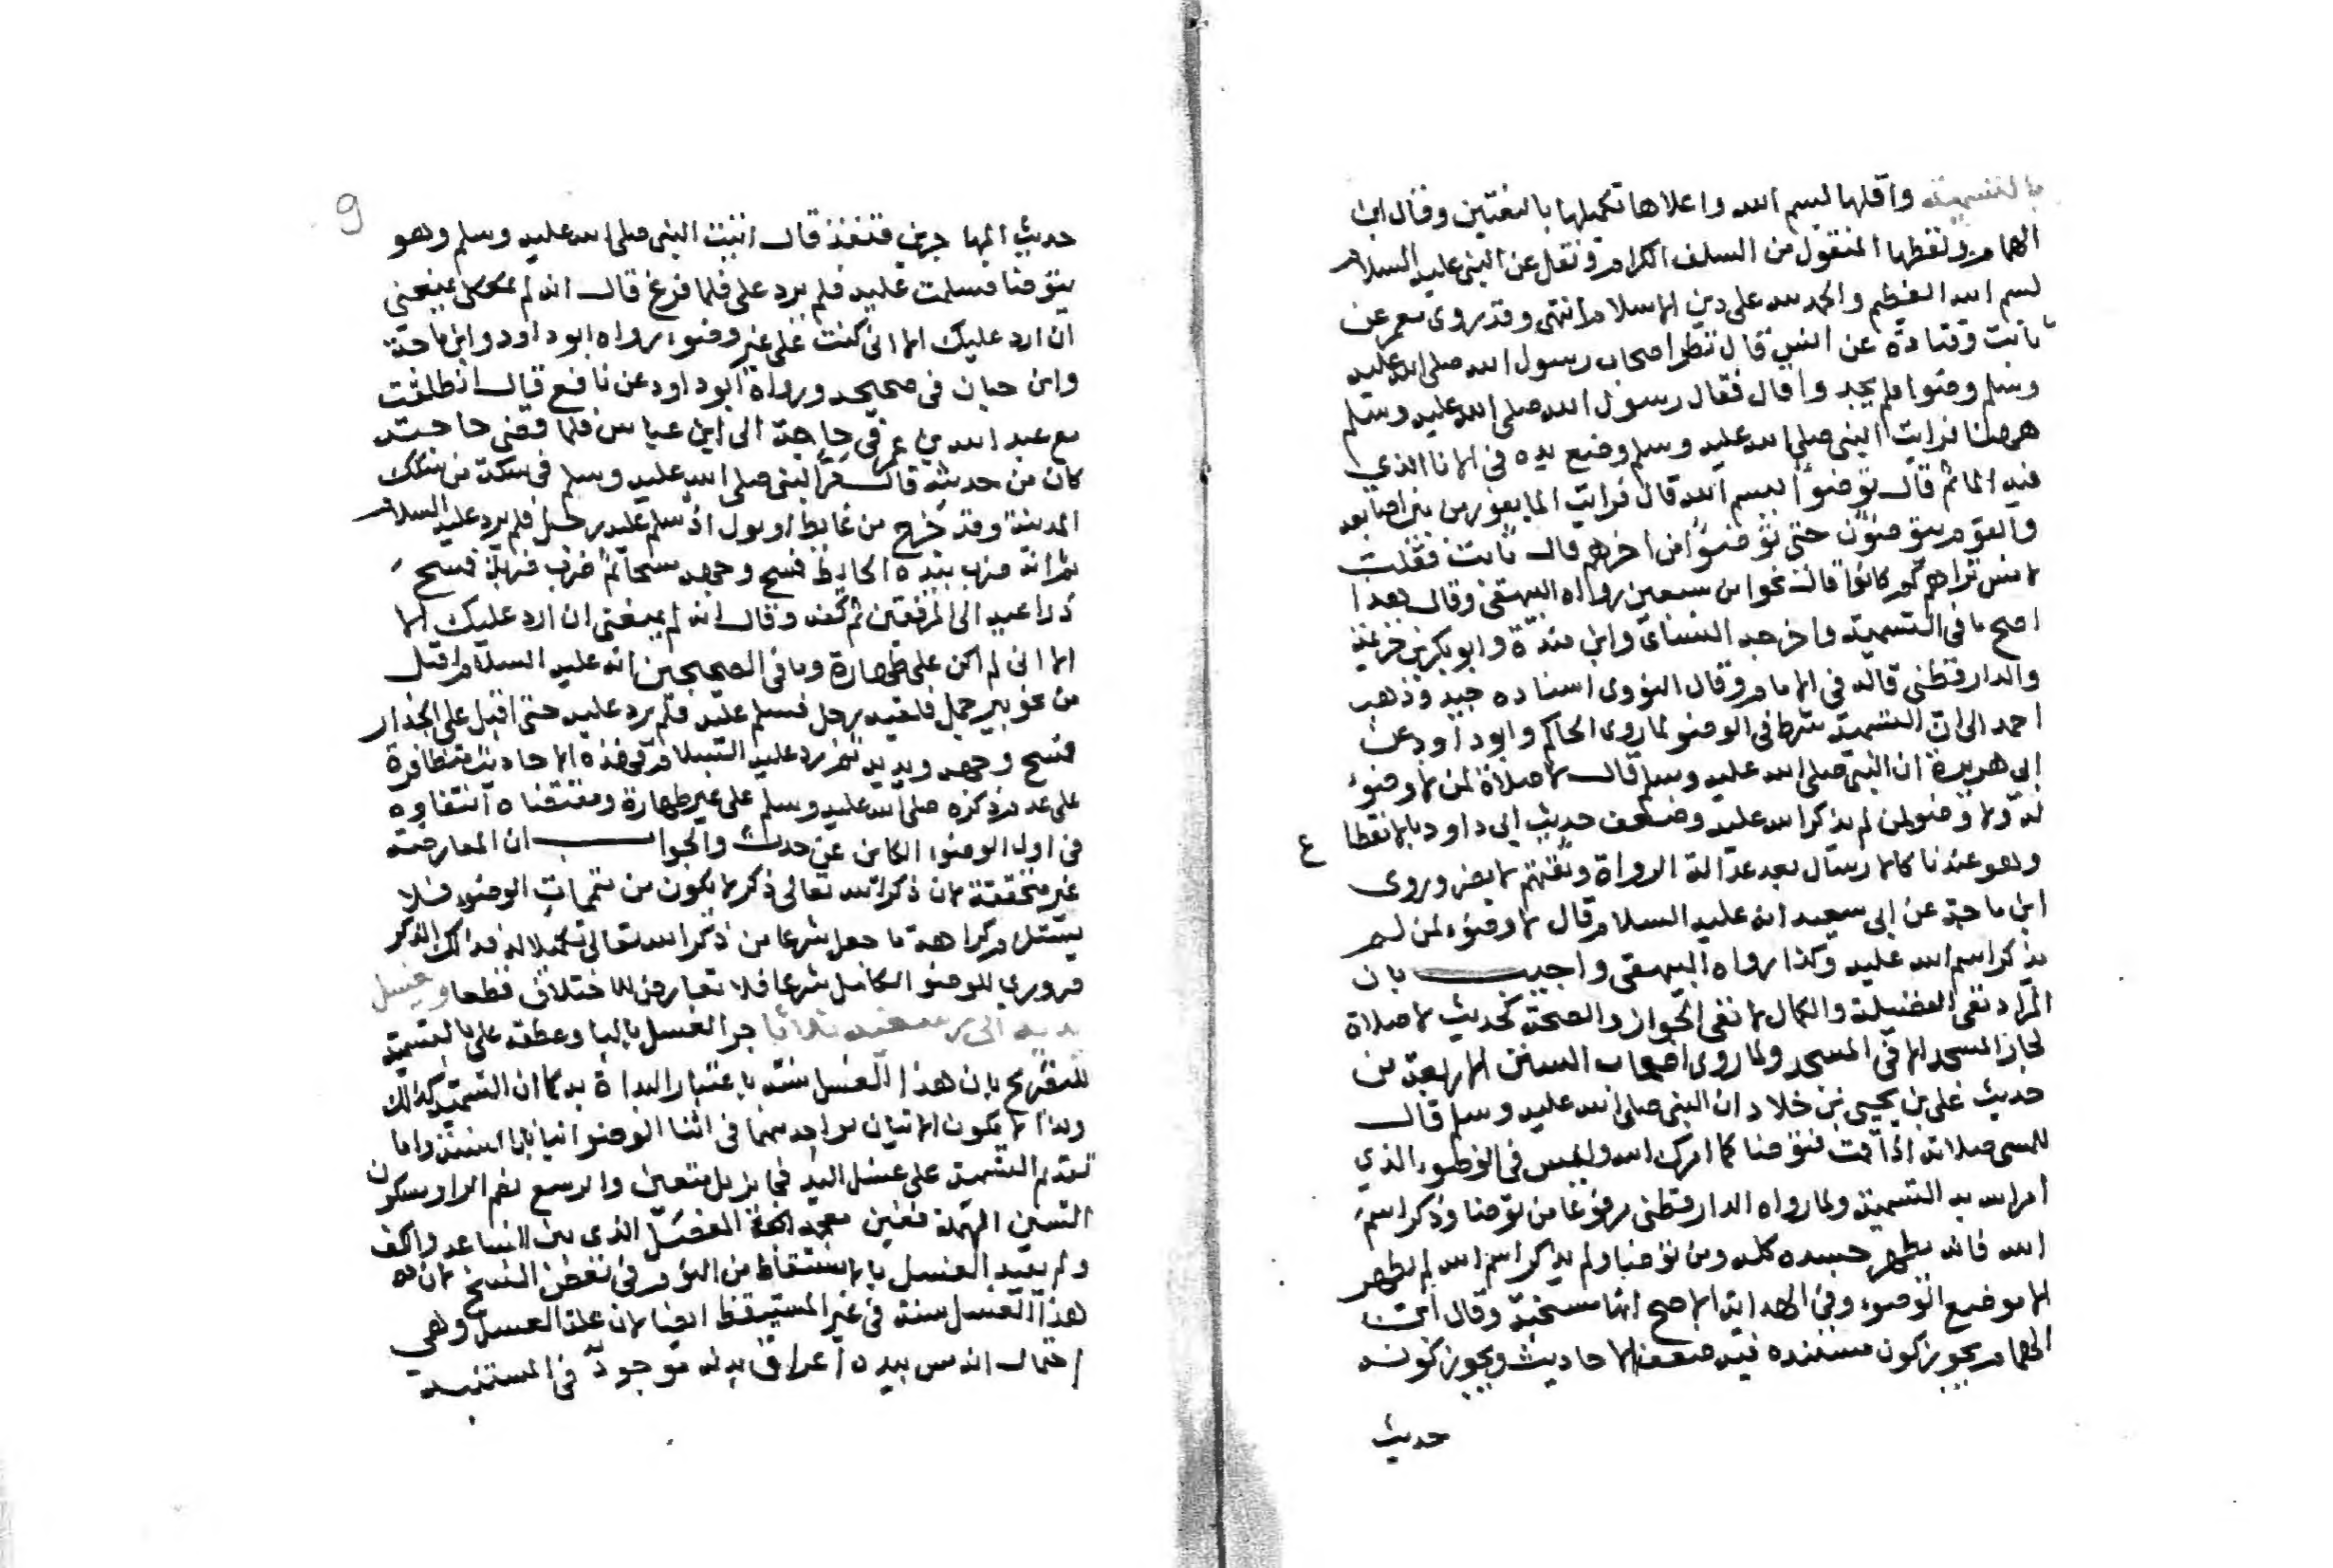 بالتسمية واقلها بسم الله واعلاها تكميلها بالنعتين وقال ابن
الهمام ولفظها المنقول من السلف الكرام ونقل عن النبي عليه السلام
بسم الله العظيم والحمد لله على دين الاسلام انتهى وقد روى معمر عن
ثابت وقتادة عن انس قال نظر اصحاب رسول الله صلى الله عليه
وسلم وضوا فلم يجدوا قال فقال رسول الله صلى الله عليه وسلم
ههنا فرايت النبي صلى الله عليه وسلم وضع يده في الانا الذي
فيه الما ثم قال توضئوا بسم الله قال فرايت الما يفور من بين اصابعه
والقوم يتوضئون حتى توضئوا من اخرهم قال ثابت فقلت
لانس تراهم كم كانوا قال نحوا من سبعين رواه البيهقي وقال هذا
اصح ما في التسمية واخرجه النسائ وابن مندة وابو بكر بن خزيمة
والدارقطني قاله في الامام وقال النووي اسناده جيد وذهب
احمد الى ان التسمية شرط في الوضو لما روى الحاكم وابو داود عن
ابي هريرة ان النبي صلى الله عليه وسلم قال لا صلاة لمن لا وضوء
له ولا وضو لمن لم يذكر الله عليه وضعف حديث ابي داود بالانقطا ع
وهو عندنا كالارسال بعد عدالة الرواة وثقتهم لا يضر وروى
ابن ماجة عن ابي سعيد انه عليه السلام قال لا وضوء لمن لم
يذكر اسم الله عليه وكذا رواه البيهقي واجيب بان
المراد نفي الفضيلة والكمال لا نفي الجواز والصحة كحديث لا صلاة
لجار المسجد الا في المسجد ولما روى اصحاب السنن الاربعة من
حديث علي بن يحيى بن خلاد ان النبي صلى الله عليه وسلم قال
للمسي صلاته اذا قمت فتوضا كما امرك الله وليس في الوضوء الذي
امر الله به التسمية ولما رواه الدارقطني مرفوعا من توضا وذكر اسم
الله فانه يطهر جسده كله ومن توضا ولم يذكر اسم الله لم يطهر
الا موضع الوضوء وفي الهداية الاصح انها مستحبة وقال ابن
الهمام يجوز كون مستنده فيه ضعف الاحاديث ويجوز كونه
حديث
9
حديث المهاجر بن قنفذ قال اتيت النبي صلى الله عليه وسلم وهو
يتوضا فسلمت عليه فلم يرد علي فلما فرغ قال انه لم يمنعني
ان ارد عليك الا اني كنت على غير وضوء رواه ابو داود وابن ماجة
وابن حبان في صحيحه ورواه ابو داود عن نافع قال انطلقت
مع عبد الله بن عمر في حاجة الى ابن عباس فلما قضى حاجته
كان من حديثه قال مر النبي صلى الله عليه وسلم في سكة من سكك
المدينة وقد خرج من غايط او بول اذ سلم عليه رجل فلم يرد عليه السلام
ثم انه ضرب بيده الحايط فمسح وجهه مسحا ثم ضرب ضربة فمسح
ذراعيه الى المرفقين ثم كفه وقال انه لم يمنعني ان ارد عليك الا
الا اني لم اكن على طهارة وما في الصحيحين انه عليه السلام اقبل
من نحو بير جمل فلقيه رجل فسلم عليه فلم يرد عليه حتى اقبل على الجدار
فمسح وجهه ويديه ثم رد عليه السلام في هذه الاحاديث متظافرة
على عدم ذكره صلى الله عليه وسلم على غير طهارة ومقتضاه انتفاوه
في اول الوضوء الكائن عن حدث والجواب ان المعارضة
غير متحققة لان ذكر الله تعالى ذكر لا يكون من متممات الوضوء فلا
يستلزم كراهة ما جعل شرعا من ذكر الله تعالى تكملا له فذلك الذكر
ضروري للوضو الكامل شرعا فلا تعارض للاختلاف قطعا وغسل
يديه الى رسغيه ثلاثا جر الغسل باليا وعطفه على بالتسمية
للتصريح بان هذا الغسل سنة باعتبار البداة به كما ان التسمية كذلك
ولذا لا يكون الاتيان بواحد منهما في اثنا الوضو اتيانا بالسنة واما
تقديم التسمية على غسل اليد فمما يزيل متعين والرسغ بضم الرا وسكون
السين المهملة فغين معجمة المفصل الذي بين الساعد والكف
ولم يقيد الغسل بالاستيقاظ من النوم في بعض النسخ لان
هذا الغسل سنة في غير المستيقظ ايضا لان علة الغسل وهي
احتمال انه مس بيده اعراق بدنه موجود في المستنبه